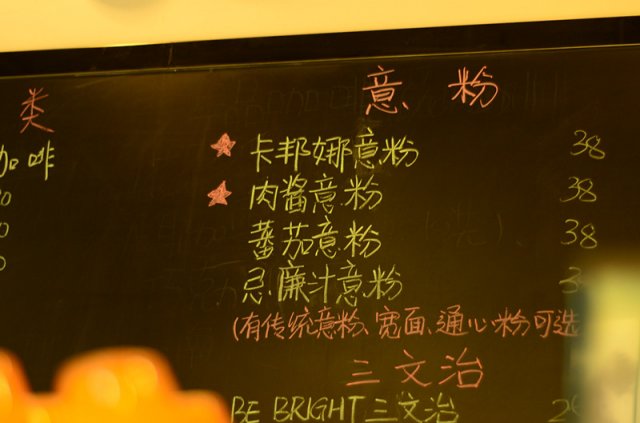 类
咖啡
意粉
★ 卡邦娜意粉 38
★ 肉酱意粉 38
蕃茄意粉 38
忌廉汁意粉
(有传统意粉、宽面、通心粉可选
三文治
BE BRIGHT 三文治